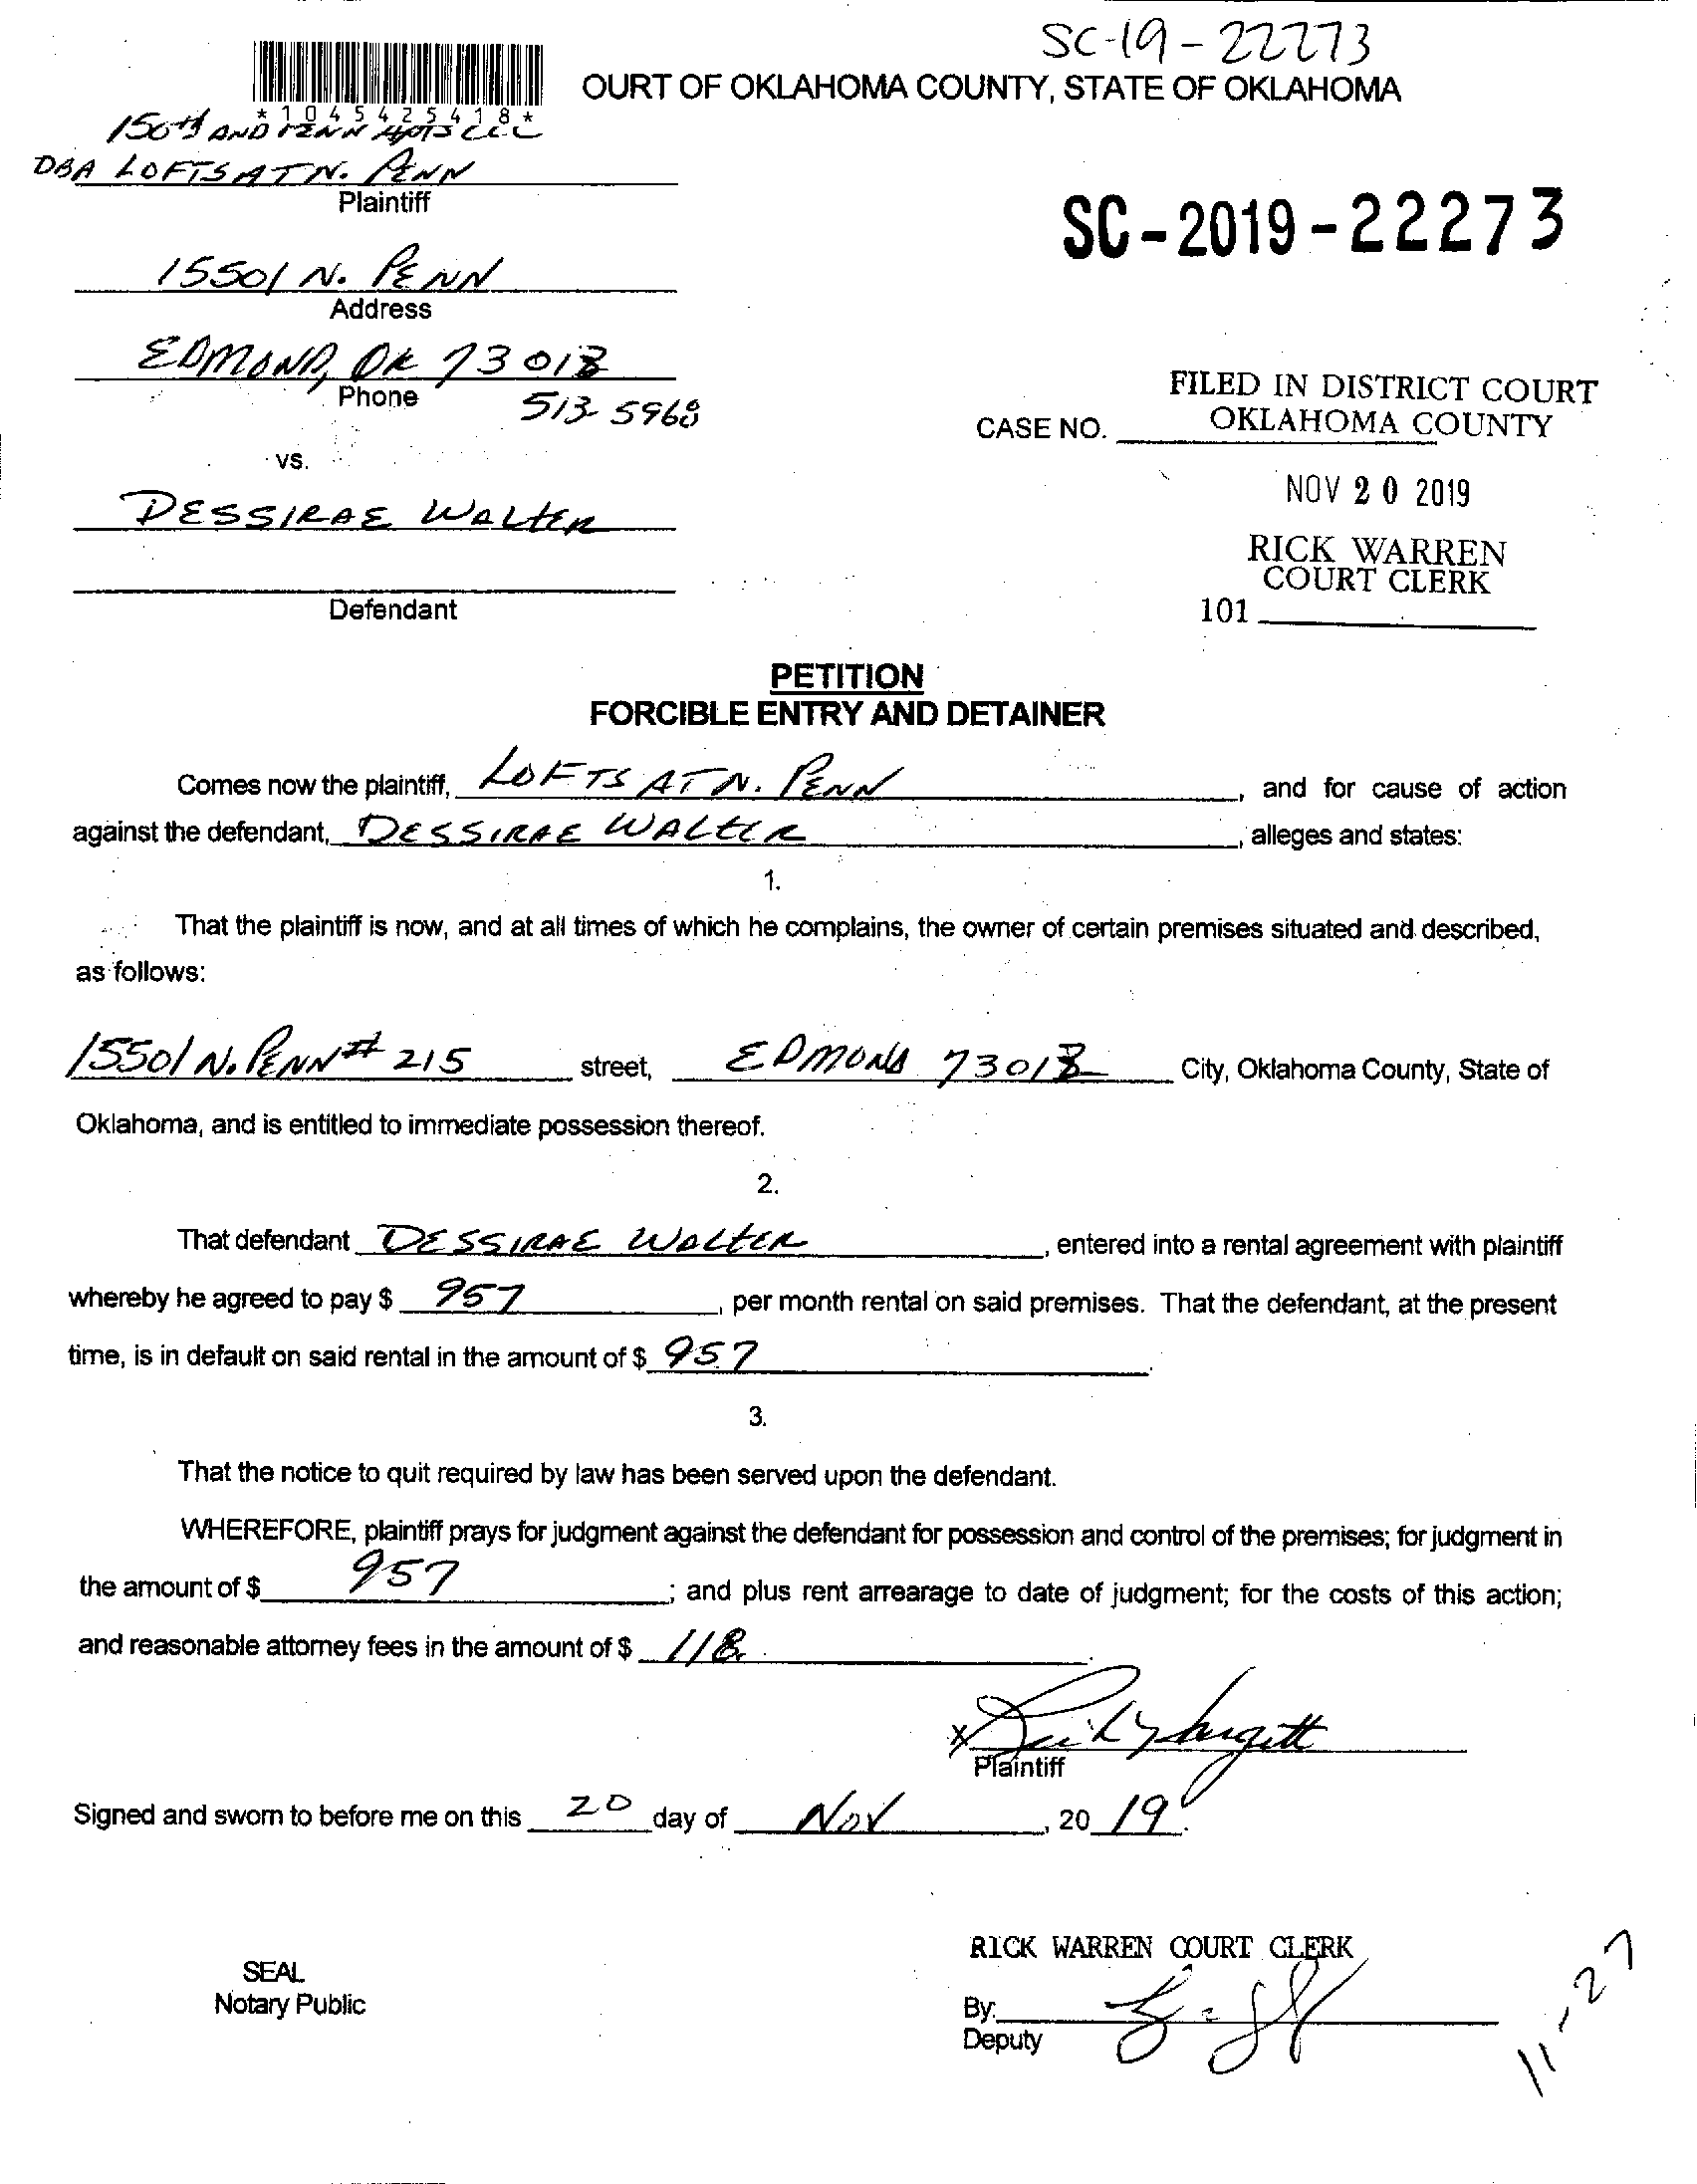 SC-19-22273
OURT OF OKLAHOMA COUNTY, STATE OF OKLAHOMA
*1045425418*
150th AND PENN APTS LLC
DBA LOFTS AT N. PENN
Plaintiff
SC-2019-22273
15501 N. PENN
Address
EDMOND, OK 73013
Phone
513-5968
FILED IN DISTRICT COURT
OKLAHOMA COUNTY
CASE NO.
vs.
NOV 20 2019
DESSIRAE WALTER
RICK WARREN
COURT CLERK
101
Defendant
PETITION
FORCIBLE ENTRY AND DETAINER
Comes now the plaintiff, LOFTS AT N. PENN, and for cause of action
against the defendant, DESSIRAE WALTER, alleges and states:
1.
That the plaintiff is now, and at all times of which he complains, the owner of certain premises situated and described,
as follows:
15501 N. PENN # 215 street, EDMOND 73013 City, Oklahoma County, State of
Oklahoma, and is entitled to immediate possession thereof.
2.
That defendant DESSIRAE WALTER, entered into a rental agreement with plaintiff
whereby he agreed to pay $ 957, per month rental on said premises. That the defendant, at the present
time, is in default on said rental in the amount of $ 957.
3.
That the notice to quit required by law has been served upon the defendant.
WHEREFORE, plaintiff prays for judgment against the defendant for possession and control of the premises; for judgment in
the amount of $ 957; and plus rent arrearage to date of judgment; for the costs of this action;
and reasonable attorney fees in the amount of $ 118.
X
Plaintiff
Signed and sworn to before me on this 20 day of NOV, 20 19.
RICK WARREN COURT CLERK
SEAL
Notary Public
By:
Deputy
11-27